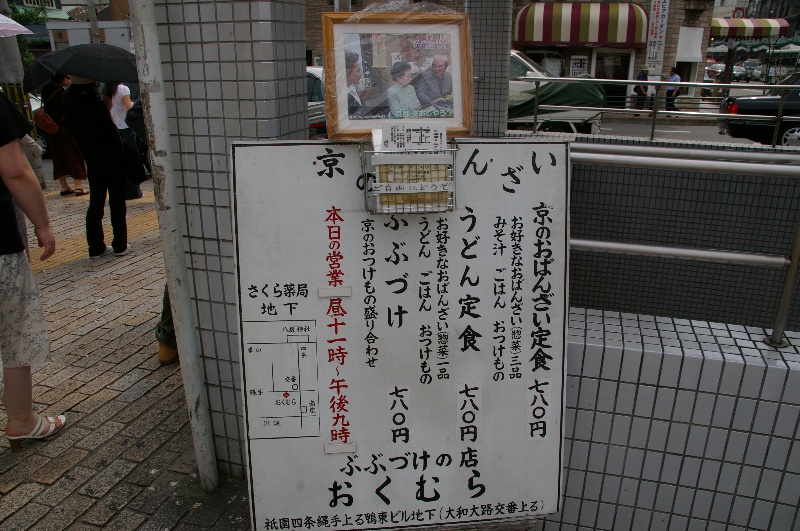 京の
んざい
ご自由にどうぞ
京のおばんざい定食 七八〇円
お好きなおばんざい(惣菜)三品
みそ汁 ごはん おつけもの
うどん定食 七八〇円
お好きなおばんざい(惣菜)一品
うどん ごはん おつけもの
ぶぶづけ 七八〇円
京のおつけもの盛り合わせ
本日の営業 昼十一時~午後九時
さくら薬局
地下
八坂神社
四条
交番
おくむら
縄手
川端
店
ぶぶづけの
おくむら
祇園四条縄手上る鴨東ビル地下(大和大路交番上る)